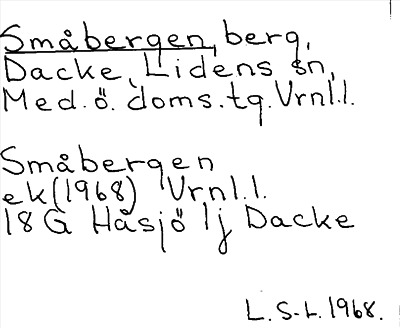 Småbergen, berg,
Dacke, Lidens sn,
Med. ö. doms.tg. Vrnl.l.
Småbergen
ek(1968) Vrnl.l.
18G Håsjö 1j Dacke
L.S-L. 1968.